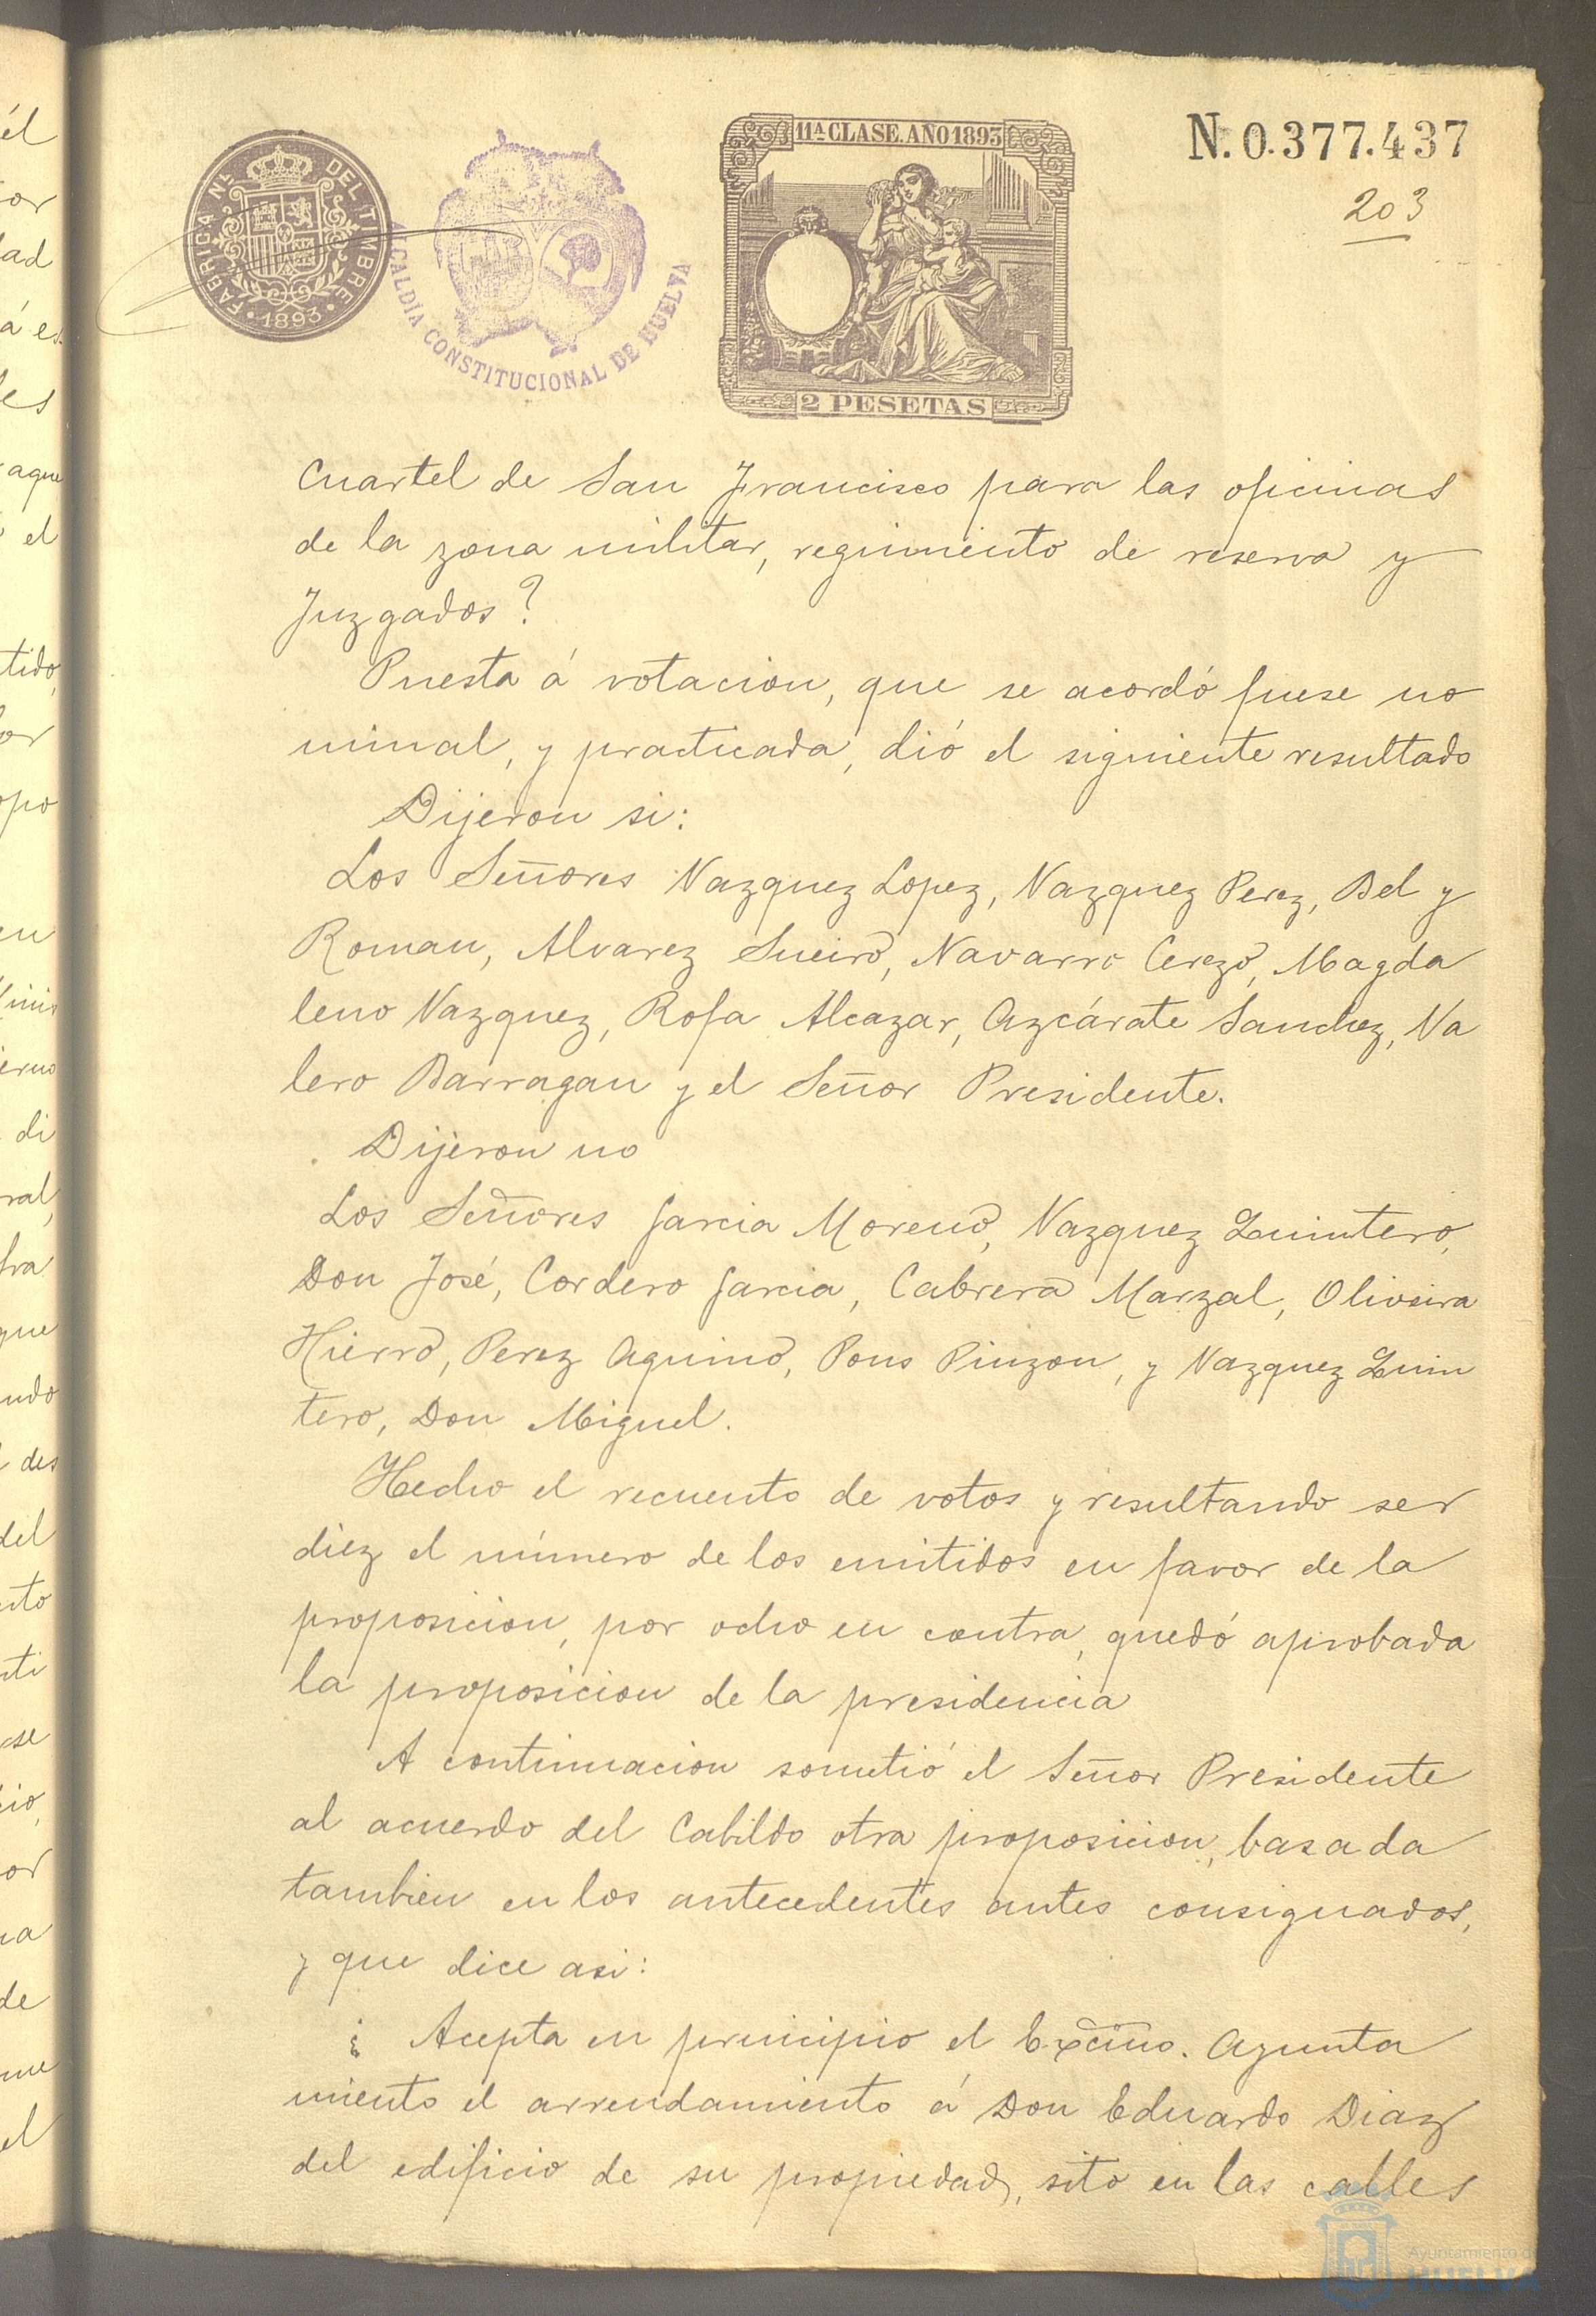 N. 0.377.437
203
11ª CLASE. AÑO 1893
2 PESETAS
FABRICA NL DEL TIMBRE
1893
ALCALDÍA CONSTITUCIONAL DE HUELVA
Cuartel de San Francisco para las oficinas
de la zona militar, regimiento de reserva y
Juzgados?
Puesta á votacion, que se acordó fuese no
minal, y practicada, dió el siguiente resultado
Dijeron si:
Los Señores Vazquez Lopez, Vazquez Perez, Bel y
Roman, Alvarez Sueiro, Navarro Cerezo, Magda
leno Vazquez, Rofa Alcazar, Azcárate Sanchez, Va
lero Barragan y el Señor Presidente.
Dijeron no
Los Señores Garcia Moreno, Vazquez Quintero,
Don José, Cordero Garcia, Cabrera Marzal, Oliveira
Hierro, Perez Aquino, Pons Pinzon, y Vazquez Quin
tero, Don Miguel.
Hecho el recuento de votos y resultando ser
diez el número de los emitidos en favor de la
proposicion, por ocho en contra, quedó aprobada
la proposicion de la presidencia
A continuacion sometió el Señor Presidente
al acuerdo del Cabildo otra proposicion, basada
tambien en los antecedentes antes consignados,
y que dice asi:
¿ Acepta en principio el Excmo. Ayunta
miento el arrendamiento á Don Eduardo Diaz
del edificio de su propiedad, sito en las calles
Ayuntamiento de
HUELVA